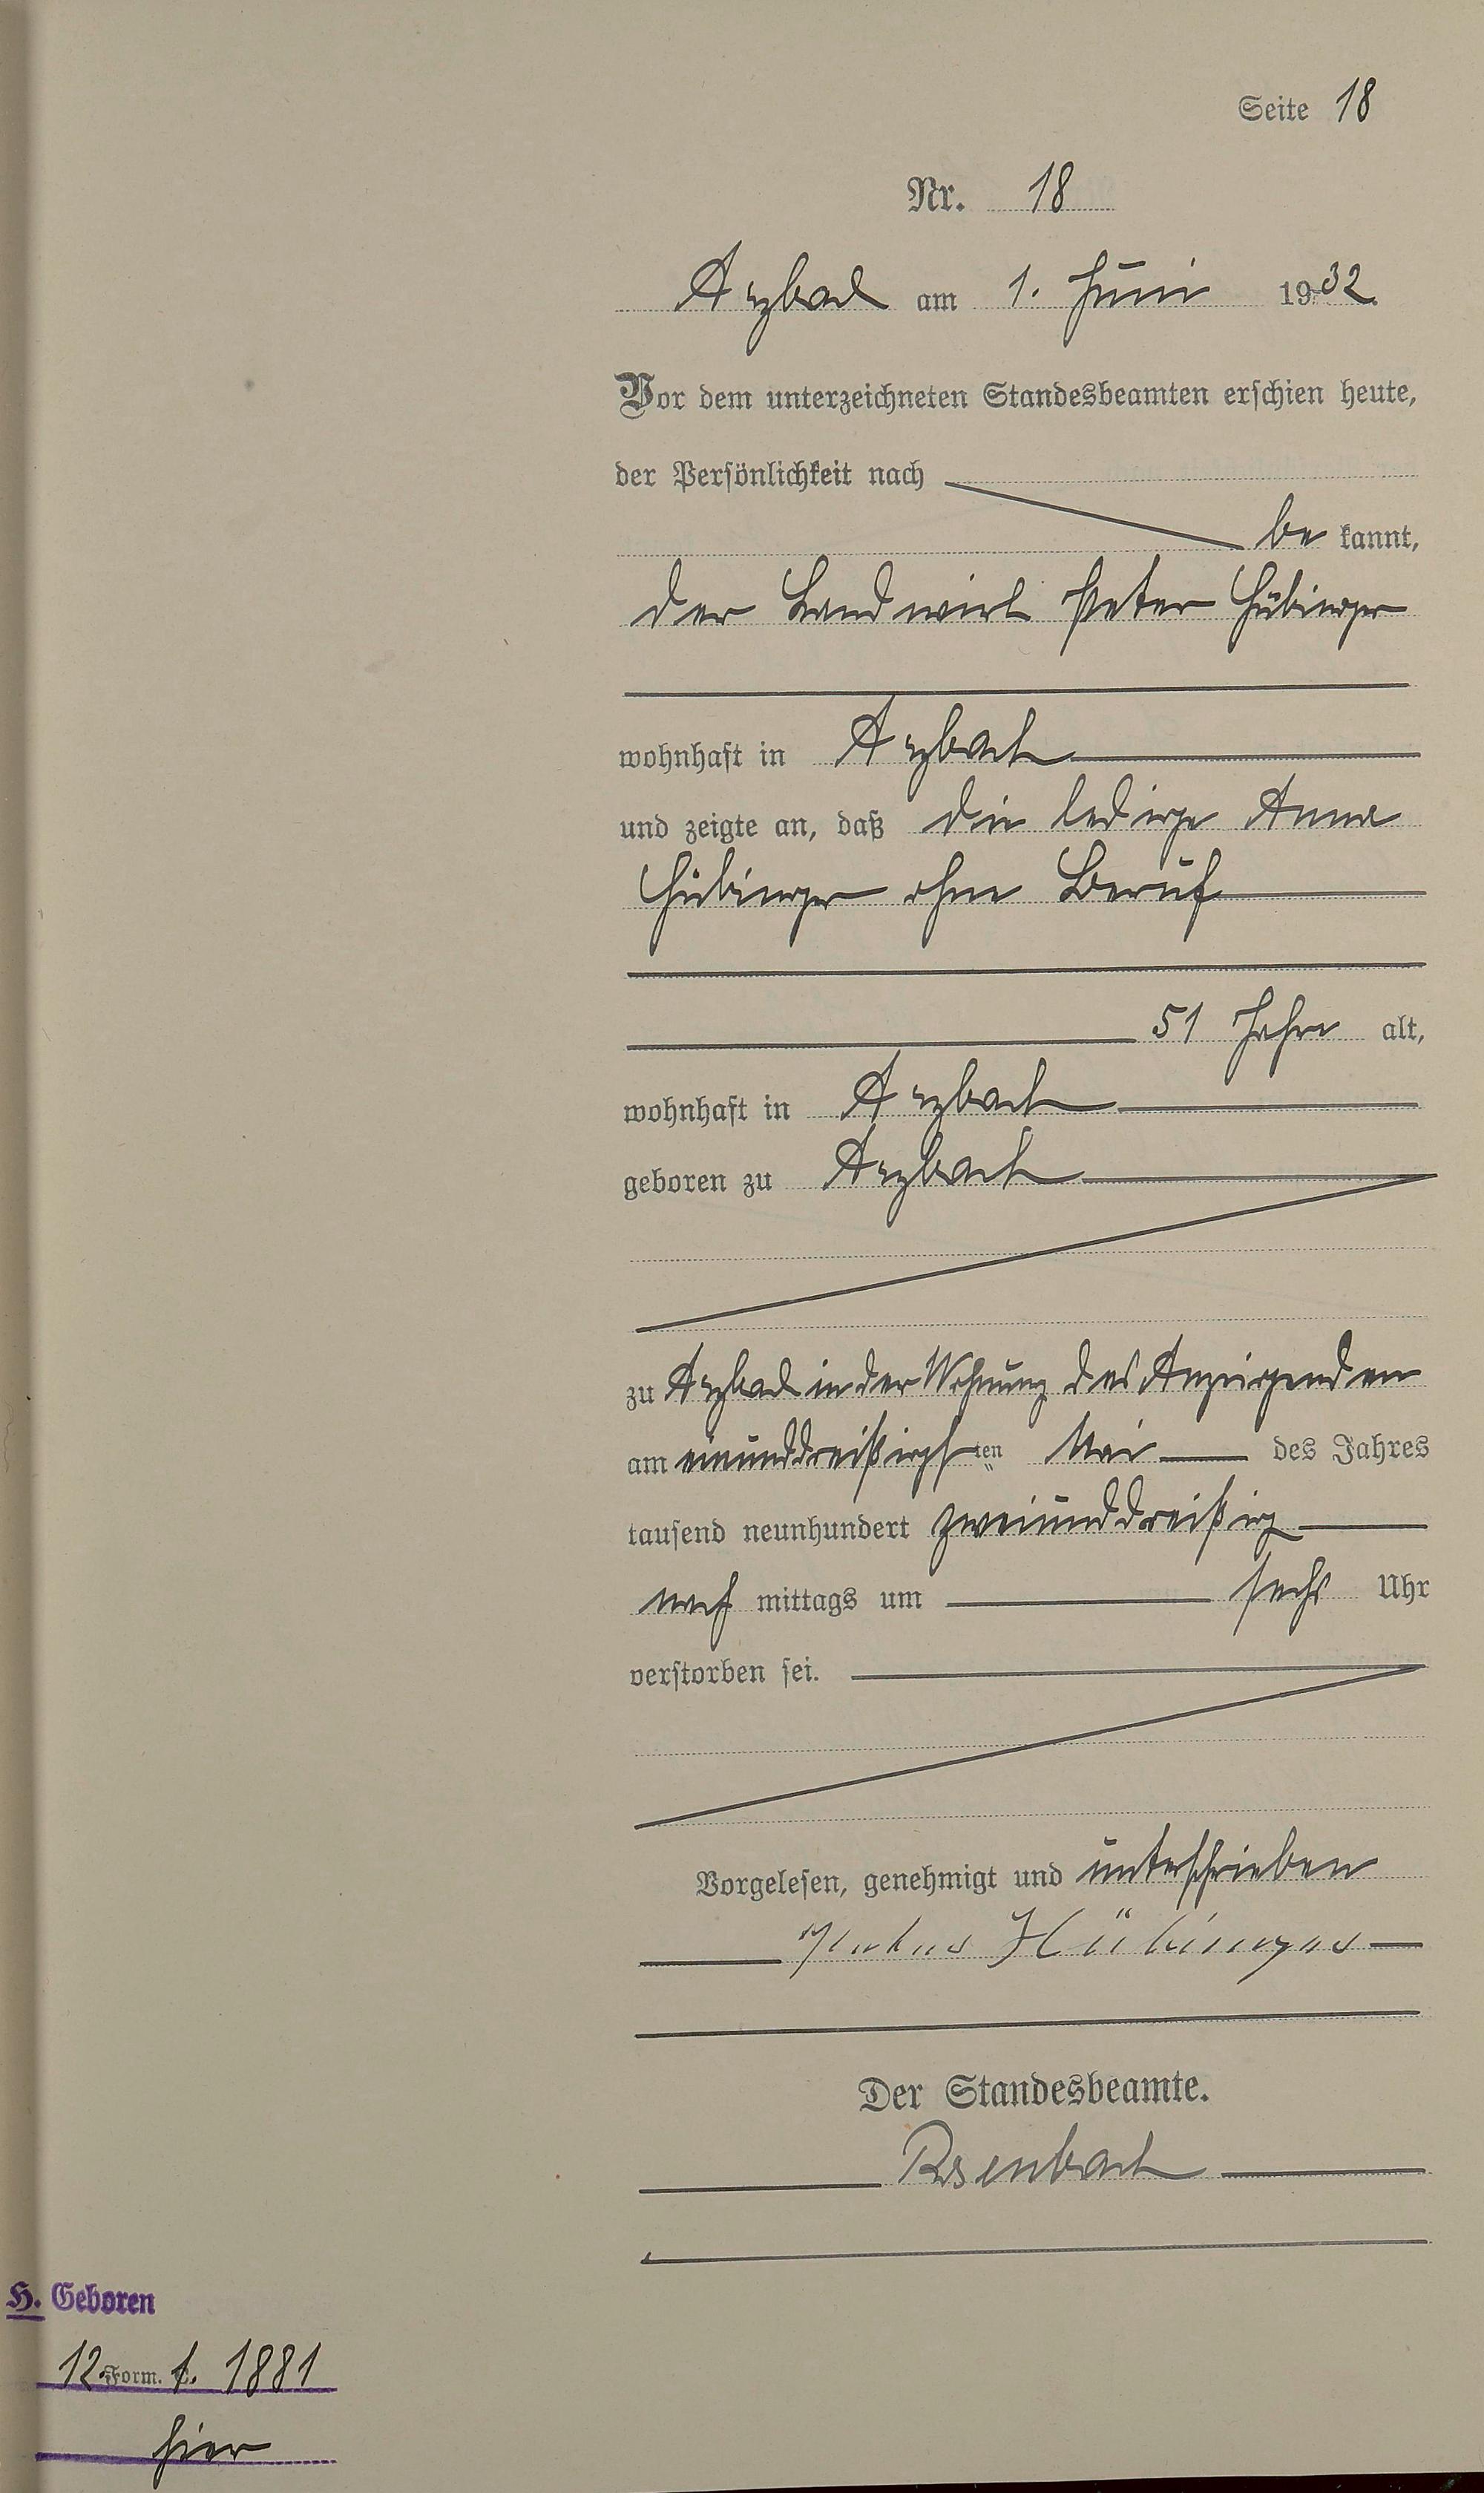 Seite 18
Nr. 18
Arzbach am 1. Juni 1932.
Vor dem unterzeichneten Standesbeamten erschien heute,
der Persönlichkeit nach
be kannt,
der Landwirt Peter Hübinger
wohnhaft in Arzbach
und zeigte an, daß die ledige Anna
Hübinger ohne Beruf
51 Jahre alt,
wohnhaft in Arzbach
geboren zu Arzbach
zu Arzbach in der Wohnung des Anzeigenden
am einunddreißigsten Mai des Jahres
tausend neunhundert zweiunddreißig
nach mittags um sechs Uhr
verstorben sei.
Vorgelesen, genehmigt und unterschrieben
Peter Hübinger
Der Standesbeamte.
Rosenbach
H. Geboren
12. Form. 1. 1881
hier